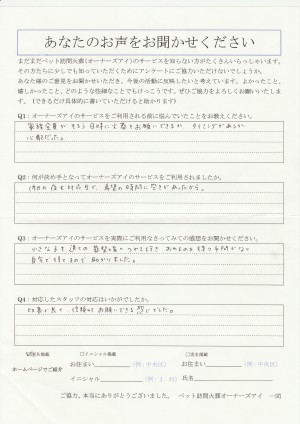 あなたのお声をお聞かせください
まだまだペット訪問火葬(オーナーズアイ)のサービスを知らない方がたくさんいらっしゃいます。
その方たちに少しでも知っていただくためにアンケートにご協力いただけないでしょうか。
あなた様のご意見をお聞かせいただき、今後の活動に反映したいと考えています。よかったこと、
嬉しかったこと、どのような些細なことでもけっこうです。ぜひ協力をよろしくお願いいたしま
す。(できるだけ具体的に書いていただけると助かります)
Q1：オーナーズアイのサービスをご利用される前に悩んでいたことをお教えください。
家族全員がそろう日時に火葬をお願いできるか、タイミングがあうか
心配だった。
Q2：何が決め手となってオーナーズアイをご利用されましたか。
他の方も対応も、希望の時間に空きがあったから。
Q3：オーナーズアイのサービスを実際にご利用なさってみての感想をお聞かせください。
自宅で待てるので助かりました。
Q4：対応したスタッフの対応はいかがでしたか。
お願いできる感じでした。
□イニシャル掲載
ホームページでご紹介
お住まい (例：中央区)
お住まい (例：中央区)
イニシャル (例：J. H)
氏名
ご協力、本当にありがとうございました。 ペット訪問火葬オーナーズアイ 一同